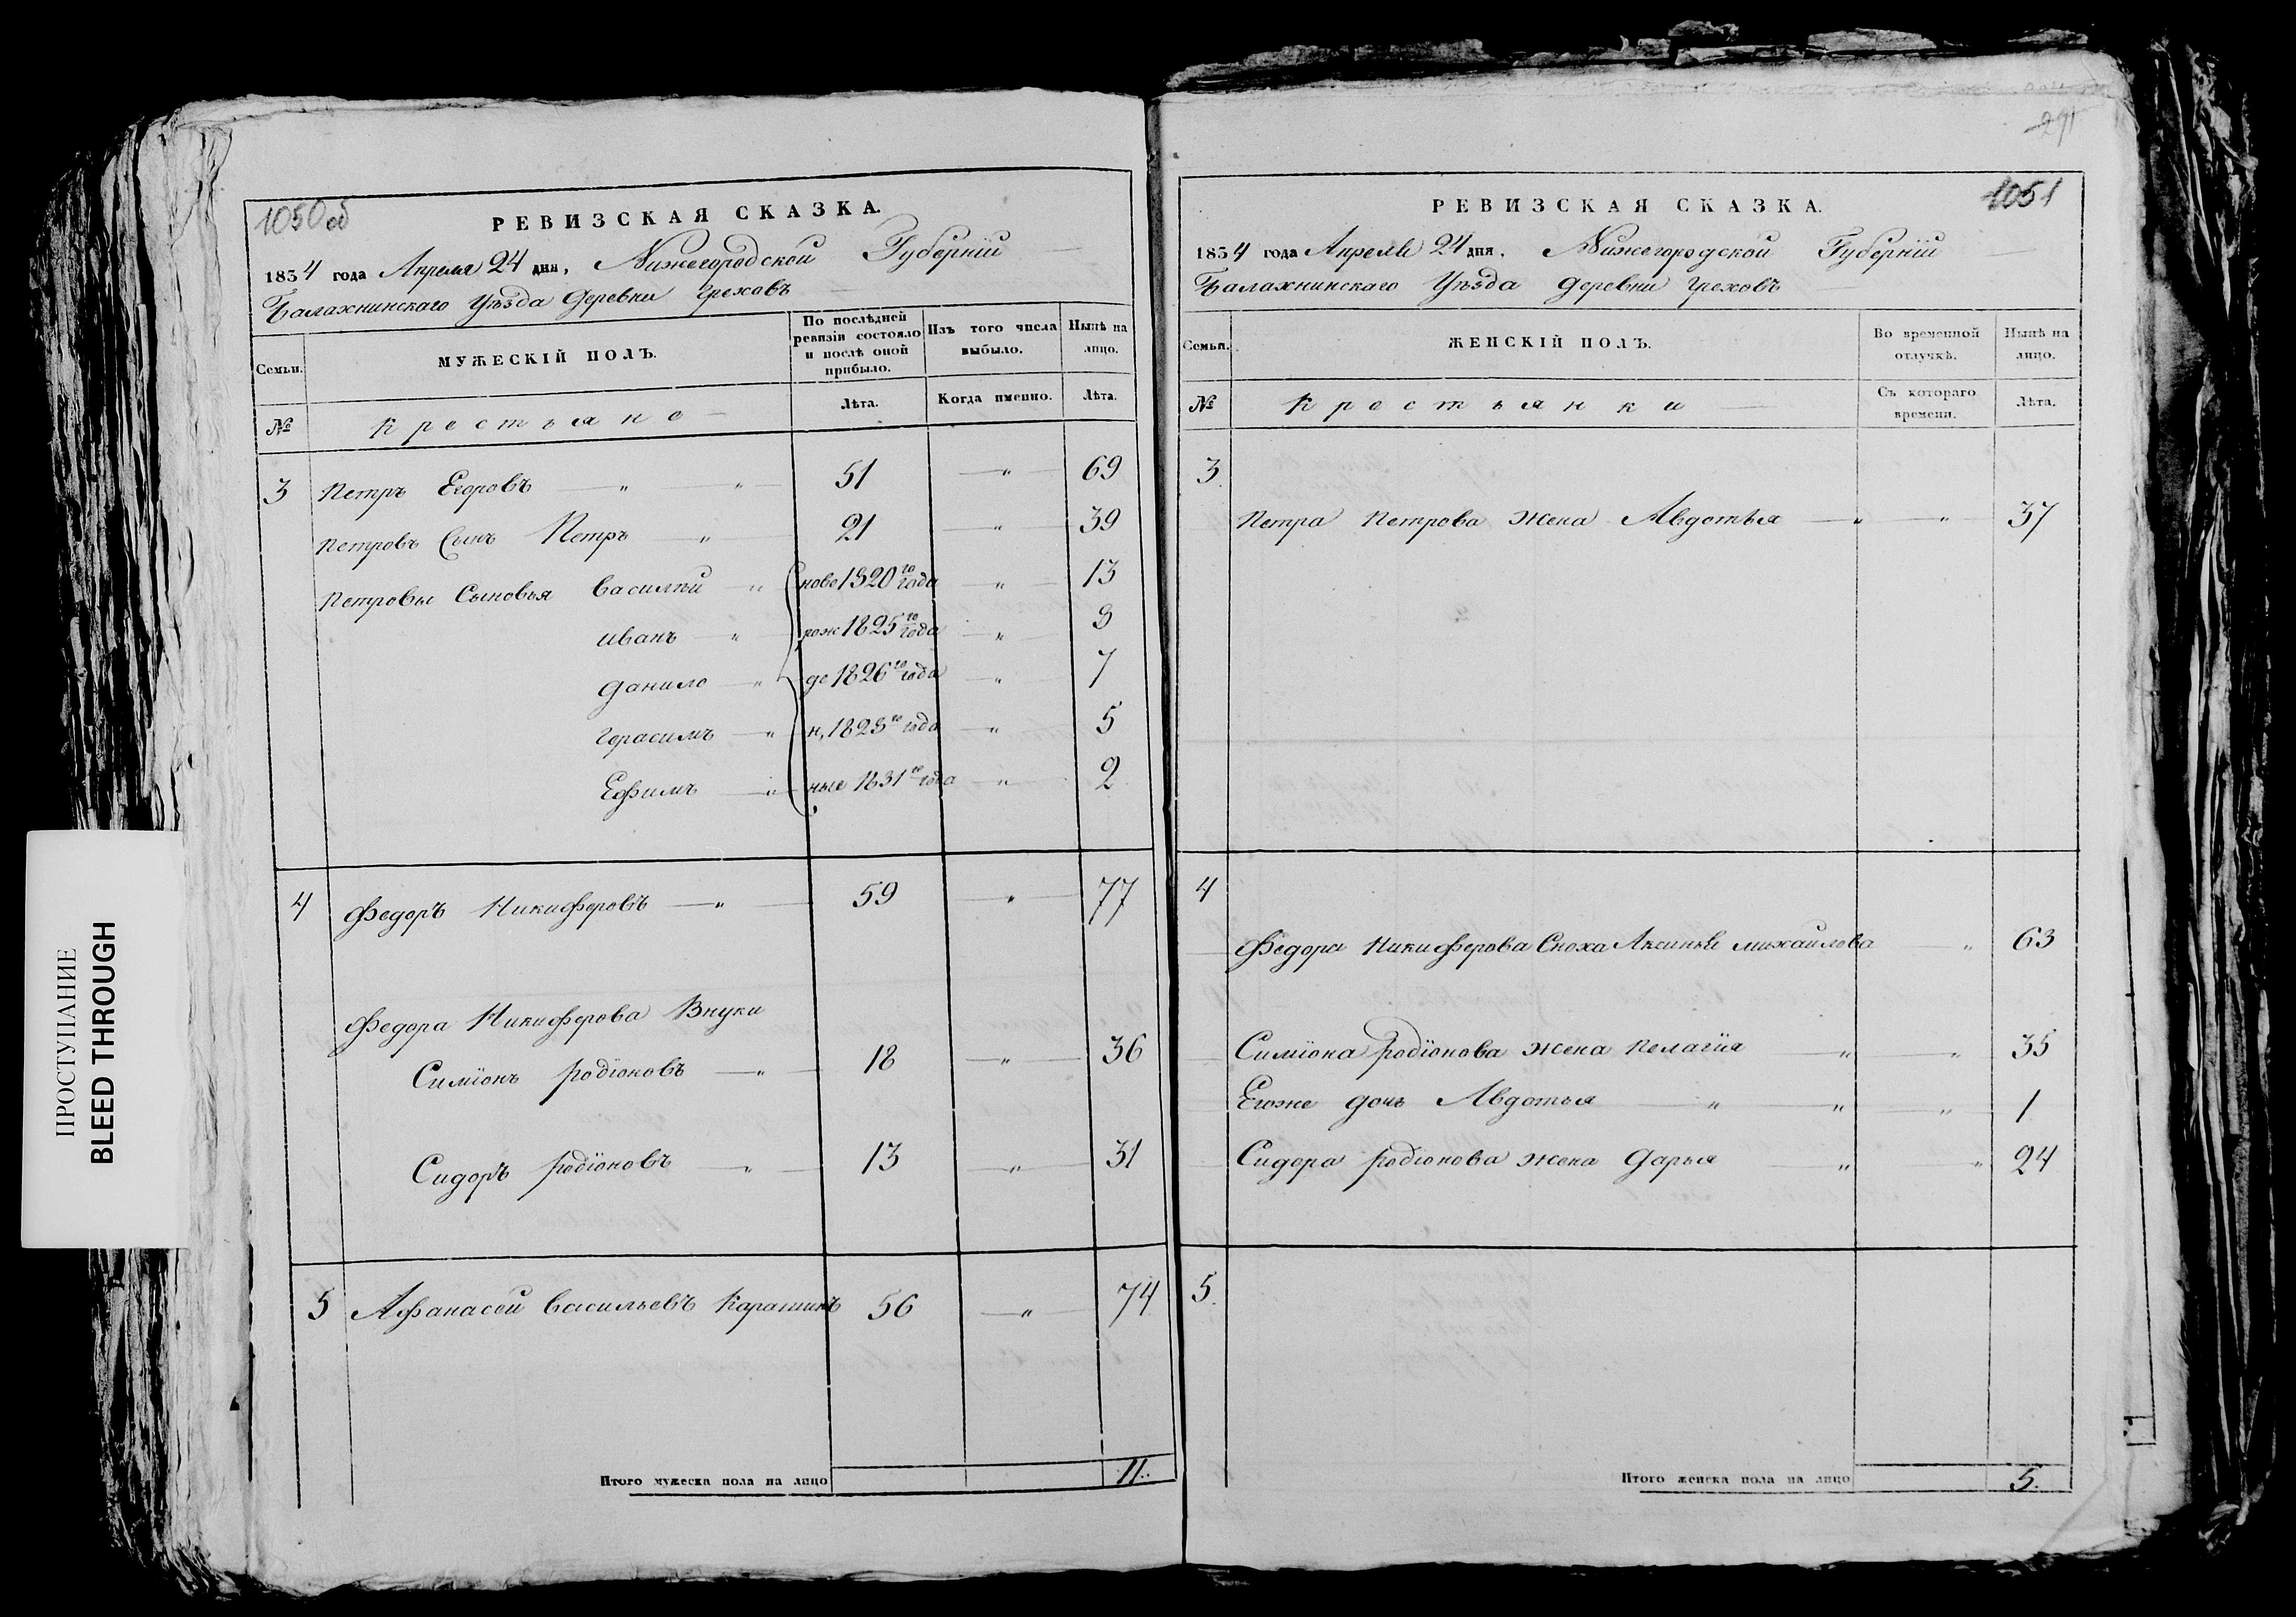 1050 об
РЕВИЗСКАЯ СКАЗКА.
1834 года Апреля 24 дня, Нижегородской Губернïи
Балахнинскаго Уѣзда деревни Греховъ
Семьи.
МУЖЕСКІЙ ПОЛЪ.
По послѣдней ревизіи состояло и послѣ оной прибыло.
Изъ того числа выбыло.
Нынѣ на лицо.
№
Крестьяне
Лѣта.
Когда именно.
Лѣта.
3 Петръ Егоровъ — „ „ 51 — „ — 69
Петровъ Сынъ Петръ „ 21 — „ — 39
Петровы Сыновья Василѣй „ ново 1820го года — „ — 13
иванъ „ рож 1825го года — „ — 8
данило — „ де 1826го года — „ — 7
герасимъ — „ н, 1828го года — „ — 5
Ефимъ — „ ные 1831го года — „ — 2
4 Федоръ Никиферовъ — „ — 59 „ — 77
Федора Никиферова Внуки
Симïонъ родïоновъ — „ — 18 — „ — 36
Сидоръ родïоновъ „ — 13 „ — 31
5 Афанасей Васильевъ Каратинъ 56 — „ — 74
Итого мужеска пола на лицо 11.
291
1051
РЕВИЗСКАЯ СКАЗКА.
1834 года Апреля 24 дня, Нижегородской Губернïи
Балахнинскаго Уѣзда деревни Греховъ
Семьи.
ЖЕНСКІЙ ПОЛЪ.
Во временной отлучкѣ.
Нынѣ на лицо.
№
Крестьянки
Съ котораго времени.
Лѣта.
3
Петра Петрова жена Авдотья — „ „ 37
4
Федора Никиферова Сноха Аксинья михаилова „ 63
Симïона родïонова жена пелагïя „ „ 35
Егоже дочь Авдотья — „ — „ — „ 1
Сидора родïонова жена дарья „ „ 24
5.
Итого женска пола на лицо 5.
ПРОСТУПАНИЕ
BLEED THROUGH